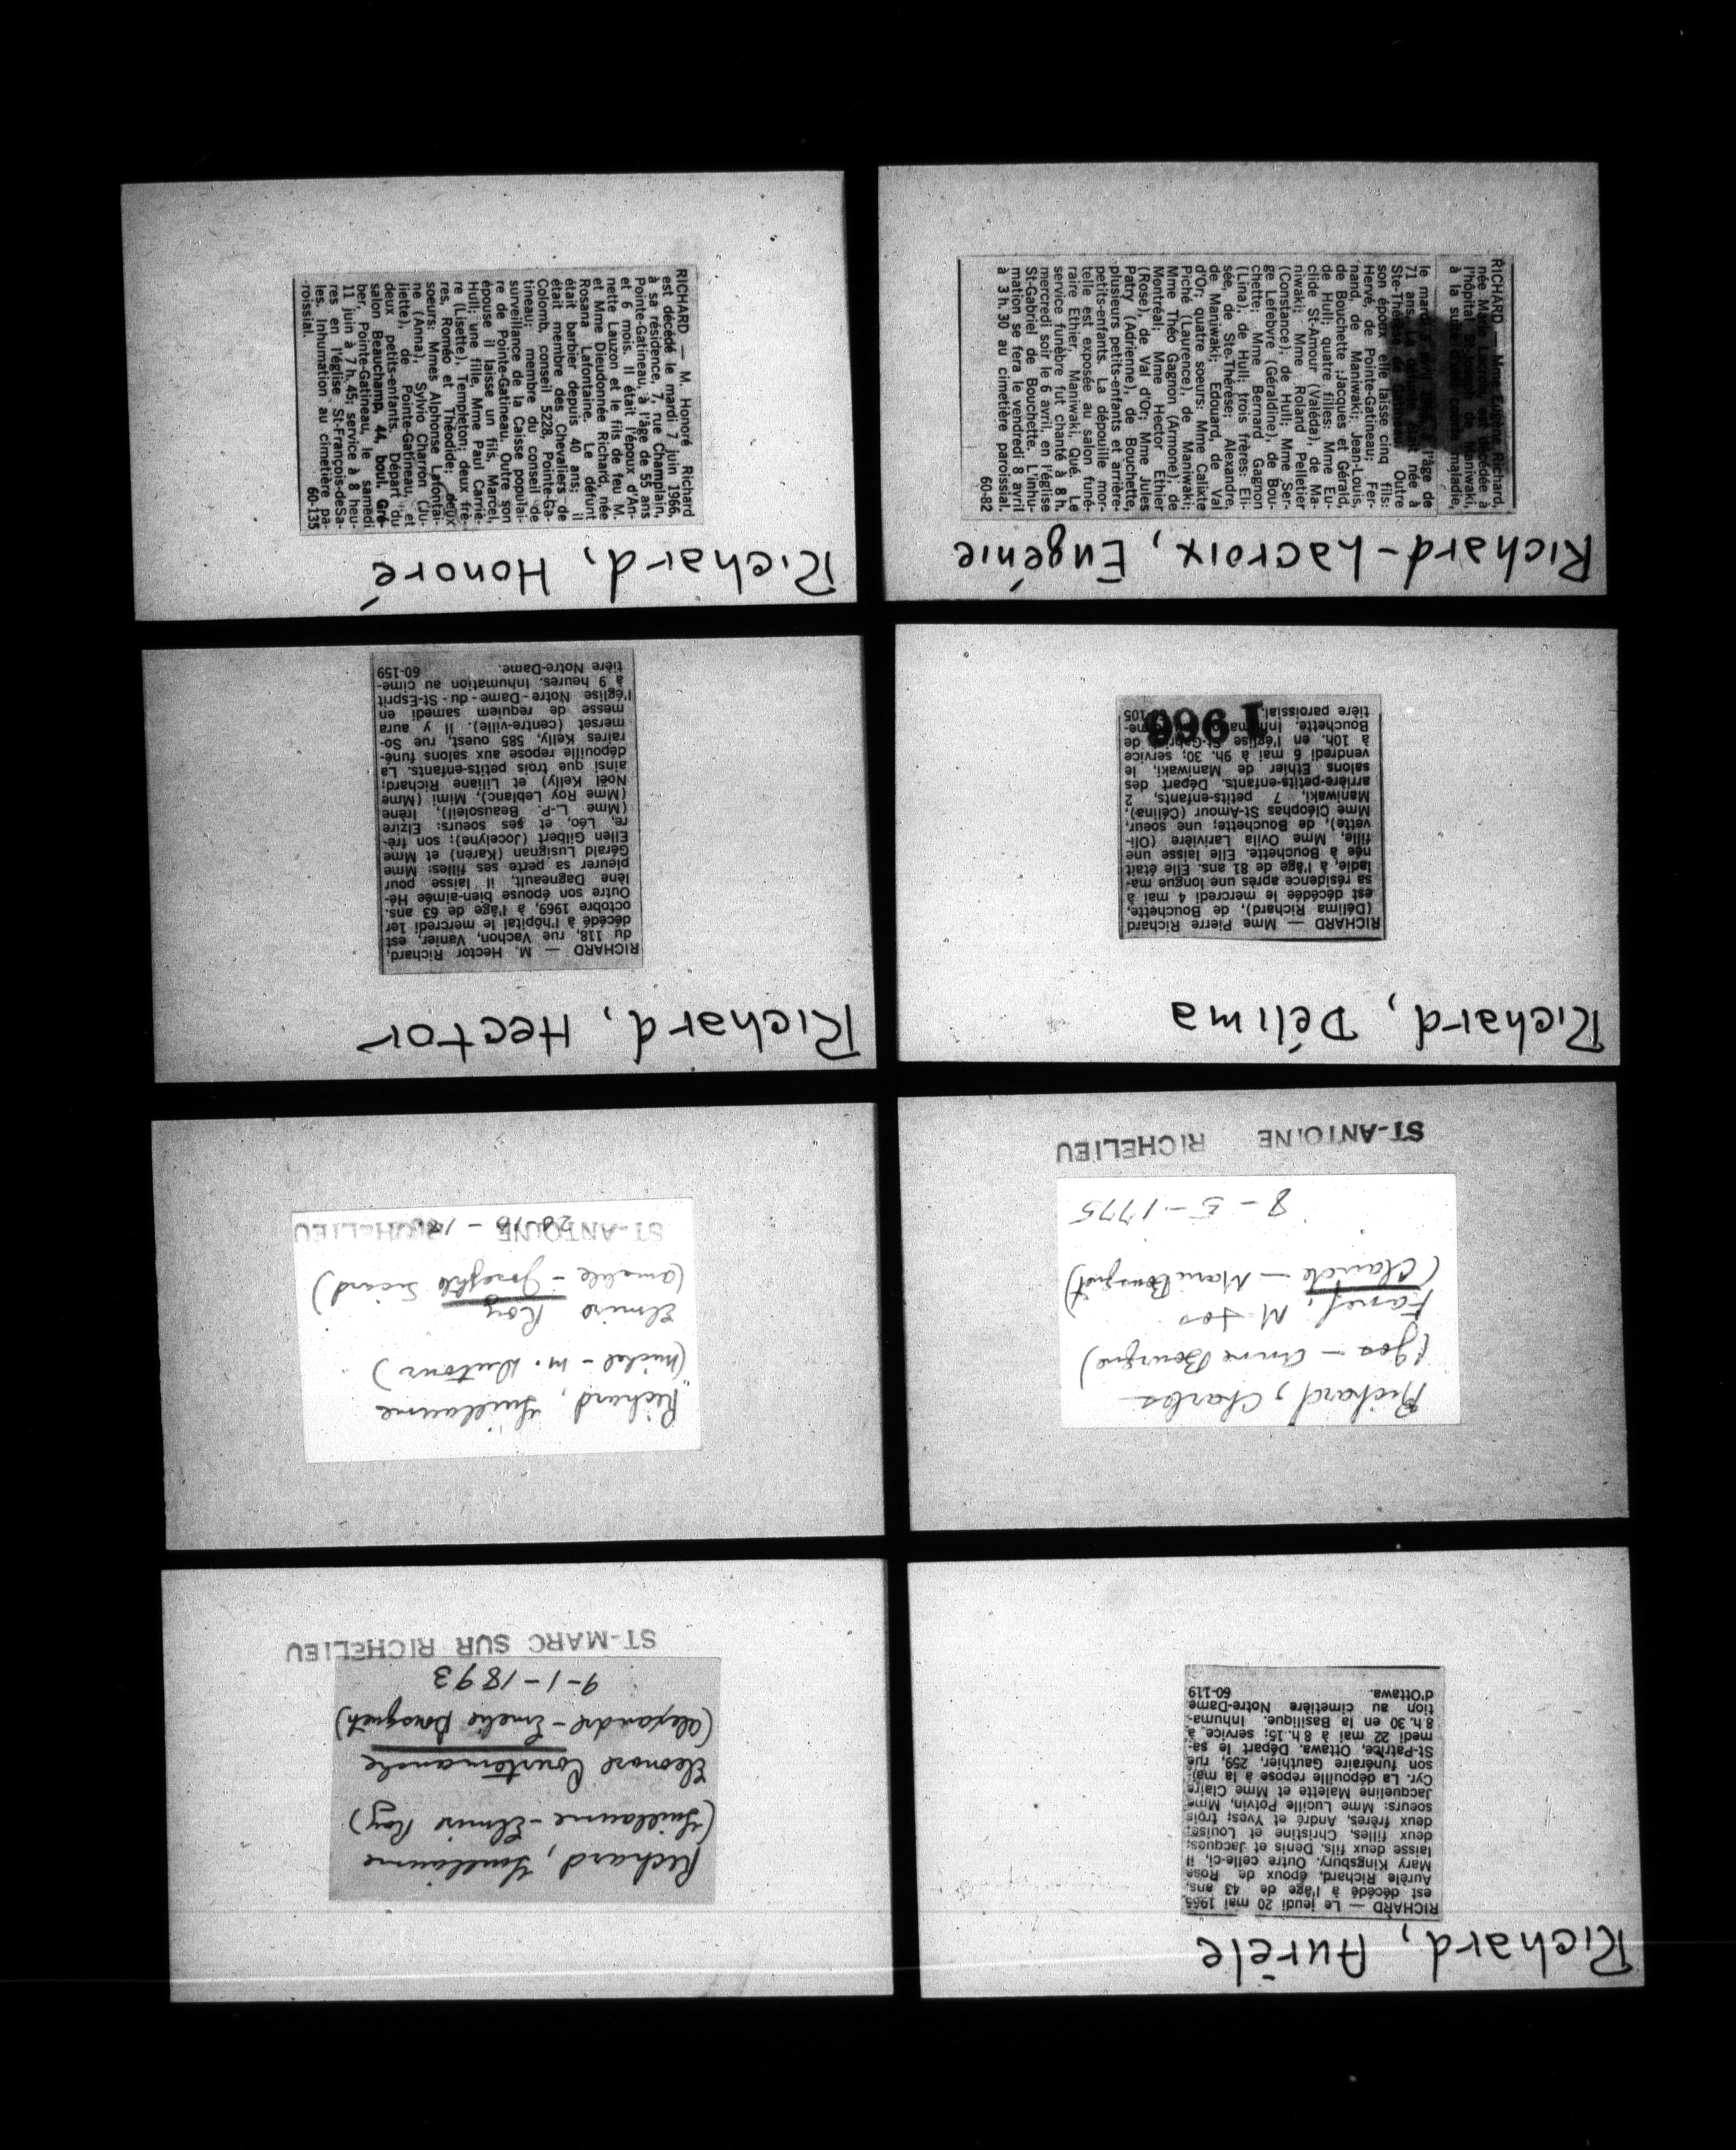 Richard, Aurèle
RICHARD — Le jeudi 20 mai 1965
est décédé à l'âge de 43 ans,
Aurèle Richard, époux de Rose
Mary Kingsbury. Outre celle-ci, il
laisse deux fils, Denis et Jacques;
deux filles, Christine et Louise;
deux frères, André et Yves; trois
soeurs: Mme Lucille Potvin, Mme
Jacqueline Malette et Mme Claire
Cyr. La dépouille repose à la mai-
son funéraire Gauthier, 259, rue
St-Patrice, Ottawa. Départ le sa-
medi 22 mai à 8 h. 15; service à
8 h. 30 en la Basilique. Inhuma-
tion au cimetière Notre-Dame
d'Ottawa. 60-119
Richard, Guillaume
(Guillaume - Elmire Roy)
Eleonore Courtemanche
(Alexandre - Emelie Bousquet)
9-1-1893
ST-MARC SUR RICHELIEU
Richard, Charles
(Jos - Anne Bourque)
M-Jos
(Claude - Marie Bousquet)
8-5-1775
ST-ANTOINE RICHELIEU
Richard, Guillaume
(Michel - M. Dutour)
Elmire Roy
(Amable - Josephte Sicard)
ST-ANTOINE RICHELIEU
Richard, Délima
RICHARD — Mme Pierre Richard
(Délima Richard), de Bouchette,
est décédée le mercredi 4 mai à
sa résidence après une longue ma-
ladie, à l'âge de 81 ans. Elle était
née à Bouchette. Elle laisse une
fille, Mme Ovila Larivière (Oli-
vette), de Bouchette; une soeur,
Mme Cléophas St-Amour (Célina),
Maniwaki, 7 petits-enfants, 2
arrière-petits-enfants. Départ des
salons Ethier de Maniwaki, le
vendredi 6 mai à 9h. 30; service
à 10h. en l'église St-Gabriel de
Bouchette. Inhumation au cime-
tière paroissial. 105
1966
Richard, Hector
RICHARD — M. Hector Richard,
du 118, rue Vachon, Vanier, est
décédé à l'hôpital le mercredi 1er
octobre 1969, à l'âge de 63 ans.
Outre son épouse bien-aimée Hé-
lène Dagneault, il laisse pour
pleurer sa perte ses filles: Mme
Gérald Lusignan (Karen) et Mme
Ellen Gilbert (Jocelyne); son frè-
re, Léo, et ses soeurs: Elzire
(Mme L.-P. Beausoleil), Irène
(Mme Roy Leblanc), Mimi (Mme
Noël Kelly) et Liliane Richard;
ainsi que trois petits-enfants. La
dépouille repose aux salons funé-
raires Kelly, 585 ouest, rue So-
merset (centre-ville). Il y aura
messe de requiem samedi en
l'église Notre-Dame-du-St-Esprit
à 9 heures. Inhumation au cime-
tière Notre-Dame. 60-159
Richard-Lacroix, Eugénie
RICHARD — Mme Eugène Richard,
née Marie Lacroix, est décédée à
l'hôpital St-Joseph de Maniwaki,
à la suite d'une courte maladie,
le mardi 5 avril 1966, à l'âge de
71 ans. La défunte était née à
Ste-Thérèse de Gatineau. Outre
son époux elle laisse cinq fils:
Hervé, de Pointe-Gatineau; Fer-
nand, de Maniwaki; Jean-Louis,
de Bouchette; Jacques et Gérald,
de Hull; quatre filles: Mme Eu-
clide St-Amour (Valéda), de Ma-
niwaki; Mme Roland Pelletier
(Constance), de Hull; Mme Ser-
ge Lefebvre (Géraldine), de Bou-
chette; Mme Bernard Gagnon
(Lina), de Hull; trois frères: Eli-
sée, de Ste-Thérèse; Alexandre,
de Maniwaki; Edouard, de Val
d'Or; quatre soeurs: Mme Calixte
Piché (Laurence), de Maniwaki;
Mme Théo Gagnon (Armone), de
Montréal; Mme Hector Ethier
(Rose), de Val d'Or; Mme Jules
Patry (Adrienne), de Bouchette,
plusieurs petits-enfants et arrière-
petits-enfants. La dépouille mor-
telle est exposée au salon funé-
raire Ethier, Maniwaki, Qué. Le
service funèbre fut chanté à 8 h.
mercredi soir le 6 avril, en l'église
St-Gabriel de Bouchette. L'inhu-
mation se fera le vendredi 8 avril
à 3 h. 30 au cimetière paroissial.
60-82
Richard, Honoré
RICHARD — M. Honoré Richard
est décédé le mardi 7 juin 1966,
à sa résidence, 7, rue Champlain,
Pointe-Gatineau, à l'âge de 55 ans
et 6 mois. Il était l'époux d'An-
nette Lauzon et le fils de feu M.
et Mme Dieudonnée Richard, née
Rosana Lafontaine. Le défunt
était barbier depuis 40 ans; il
était membre des Chevaliers de
Colomb, conseil 5228, Pointe-Ga-
tineau; membre du conseil de
surveillance de la Caisse Populai-
re de Pointe-Gatineau. Outre son
épouse il laisse un fils, Marcel,
Hull; une fille, Mme Paul Carriè-
re (Lisette), Templeton; deux frè-
res, Roméo et Théodide; deux
soeurs: Mmes Alphonse Lafontai-
ne (Anna), Sylvio Charron (Ju-
liette), de Pointe-Gatineau, et
deux petits-enfants. Départ du
salon Beauchamp, 44, boul. Gré-
ber, Pointe-Gatineau, le samedi
11 juin à 7 h. 45; service à 8 heu-
res en l'église St-François-de-Sa-
les. Inhumation au cimetière pa-
roissial. 60-135